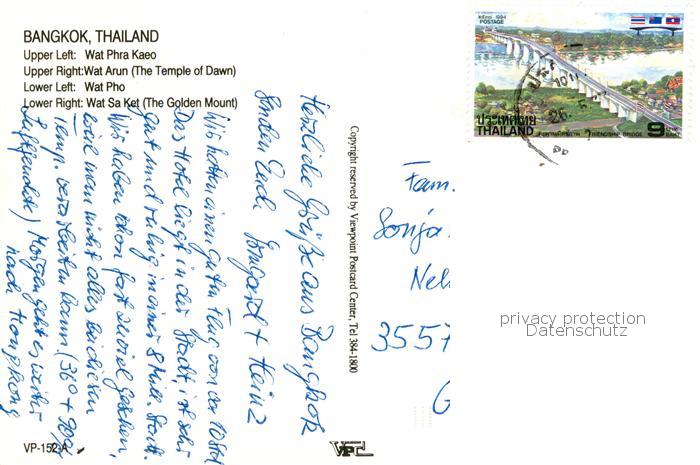 BANGKOK, THAILAND
Upper Left: Wat Phra Kaeo
Upper Right:Wat Arun (The Temple of Dawn)
Lower Left: Wat Pho
Lower Right: Wat Sa Ket (The Golden Mount)
Herzliche Grüße aus Bangkok
senden Euch Irmgard + Heinz
Wir hatten einen guten Flug von der 10 Std
Das Hotel liegt in der Stadt, ist sehr
gut und ruhig in einer 8 Mill. Stadt.
Wir haben schon fast zuviel gesehen,
weil man nicht alles bei diesen
Temp. verarbeiten kann. (36° + 90%
Luftfeuchte) Morgen geht es weiter
nach Hongkong
VP-152-A
Copyright reserved by Viewpoint Postcard Center, Tel 384-1800
VPC
1994
POSTAGE
ประเทศไทย
THAILAND
FRIENDSHIP BRIDGE
9
BAHT
Fam.
Sonja
Nel
3557
G
privacy protection
Datenschutz